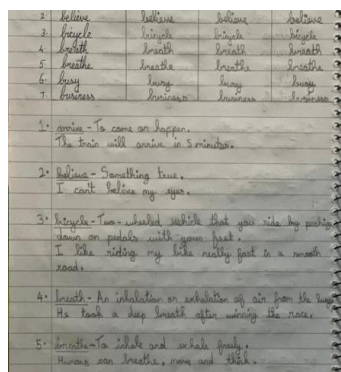 2. believe believe believe believe
3. bicycle bicycle bicycle bicycle
4. breath breath breath breath
5. breathe breathe breathe breathe
6. busy busy busy busy
7. business business business business
1. arrive - To come or happen.
The train will arrive in 5 minutes.
2. believe - Something true.
I can't believe my eyes.
3. bicycle - Two-wheeled vehicle that you ride by pushing
down on pedals with your feet.
I like riding my bike really fast in a smooth
road.
4. breath - An inhalation or exhalation of air from the lungs
He took a deep breath after winning the race.
5. breathe - To inhale and exhale freely.
Humans can breathe, move and think.